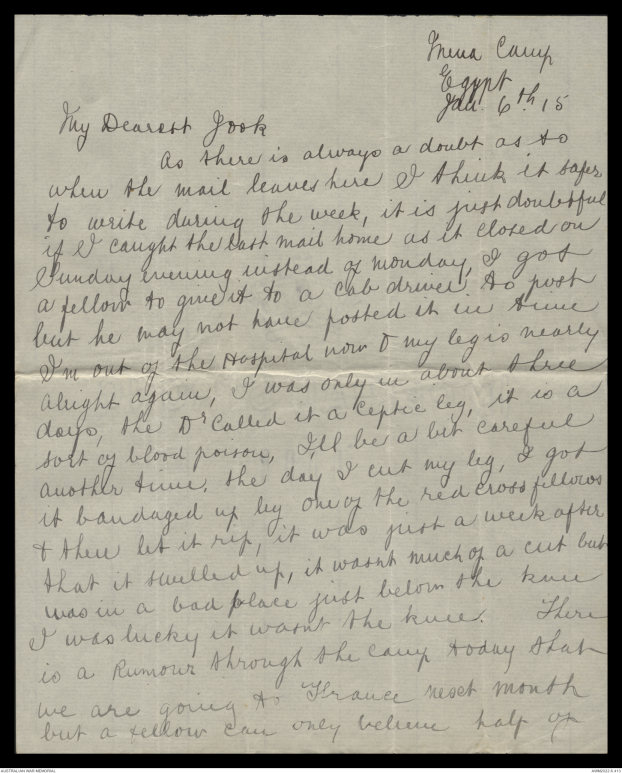 Mena Camp
Egypt
Jan. 6th 15
My Dearest Jook
As there is always a doubt as to
when the mail leaves here I think it safer
to write during the week, it is just doubtful
if I caught the last mail home as it closed on
Sunday evening instead of monday, I got
a fellow to give it to a cab driver to post
but he may not have posted it in time
I'm out of the Hospital now & my leg is nearly
alright again, I was only in about three
days, the Dr called it a ceptic leg, it is a
sort of blood poison, I'll be a bit careful
another time, the day I cut my leg, I got
it bandaged up by one of the red cross fellows
& then let it rip, it was just a week after
that it swelled up, it wasnt much of a cut but
was in a bad place just below the knee
I was lucky it wasnt the knee. There
is a Rumour through the camp today that
we are going to France next month
but a fellow can only believe half of
AUSTRALIAN WAR MEMORIAL
AWM2022.6.413